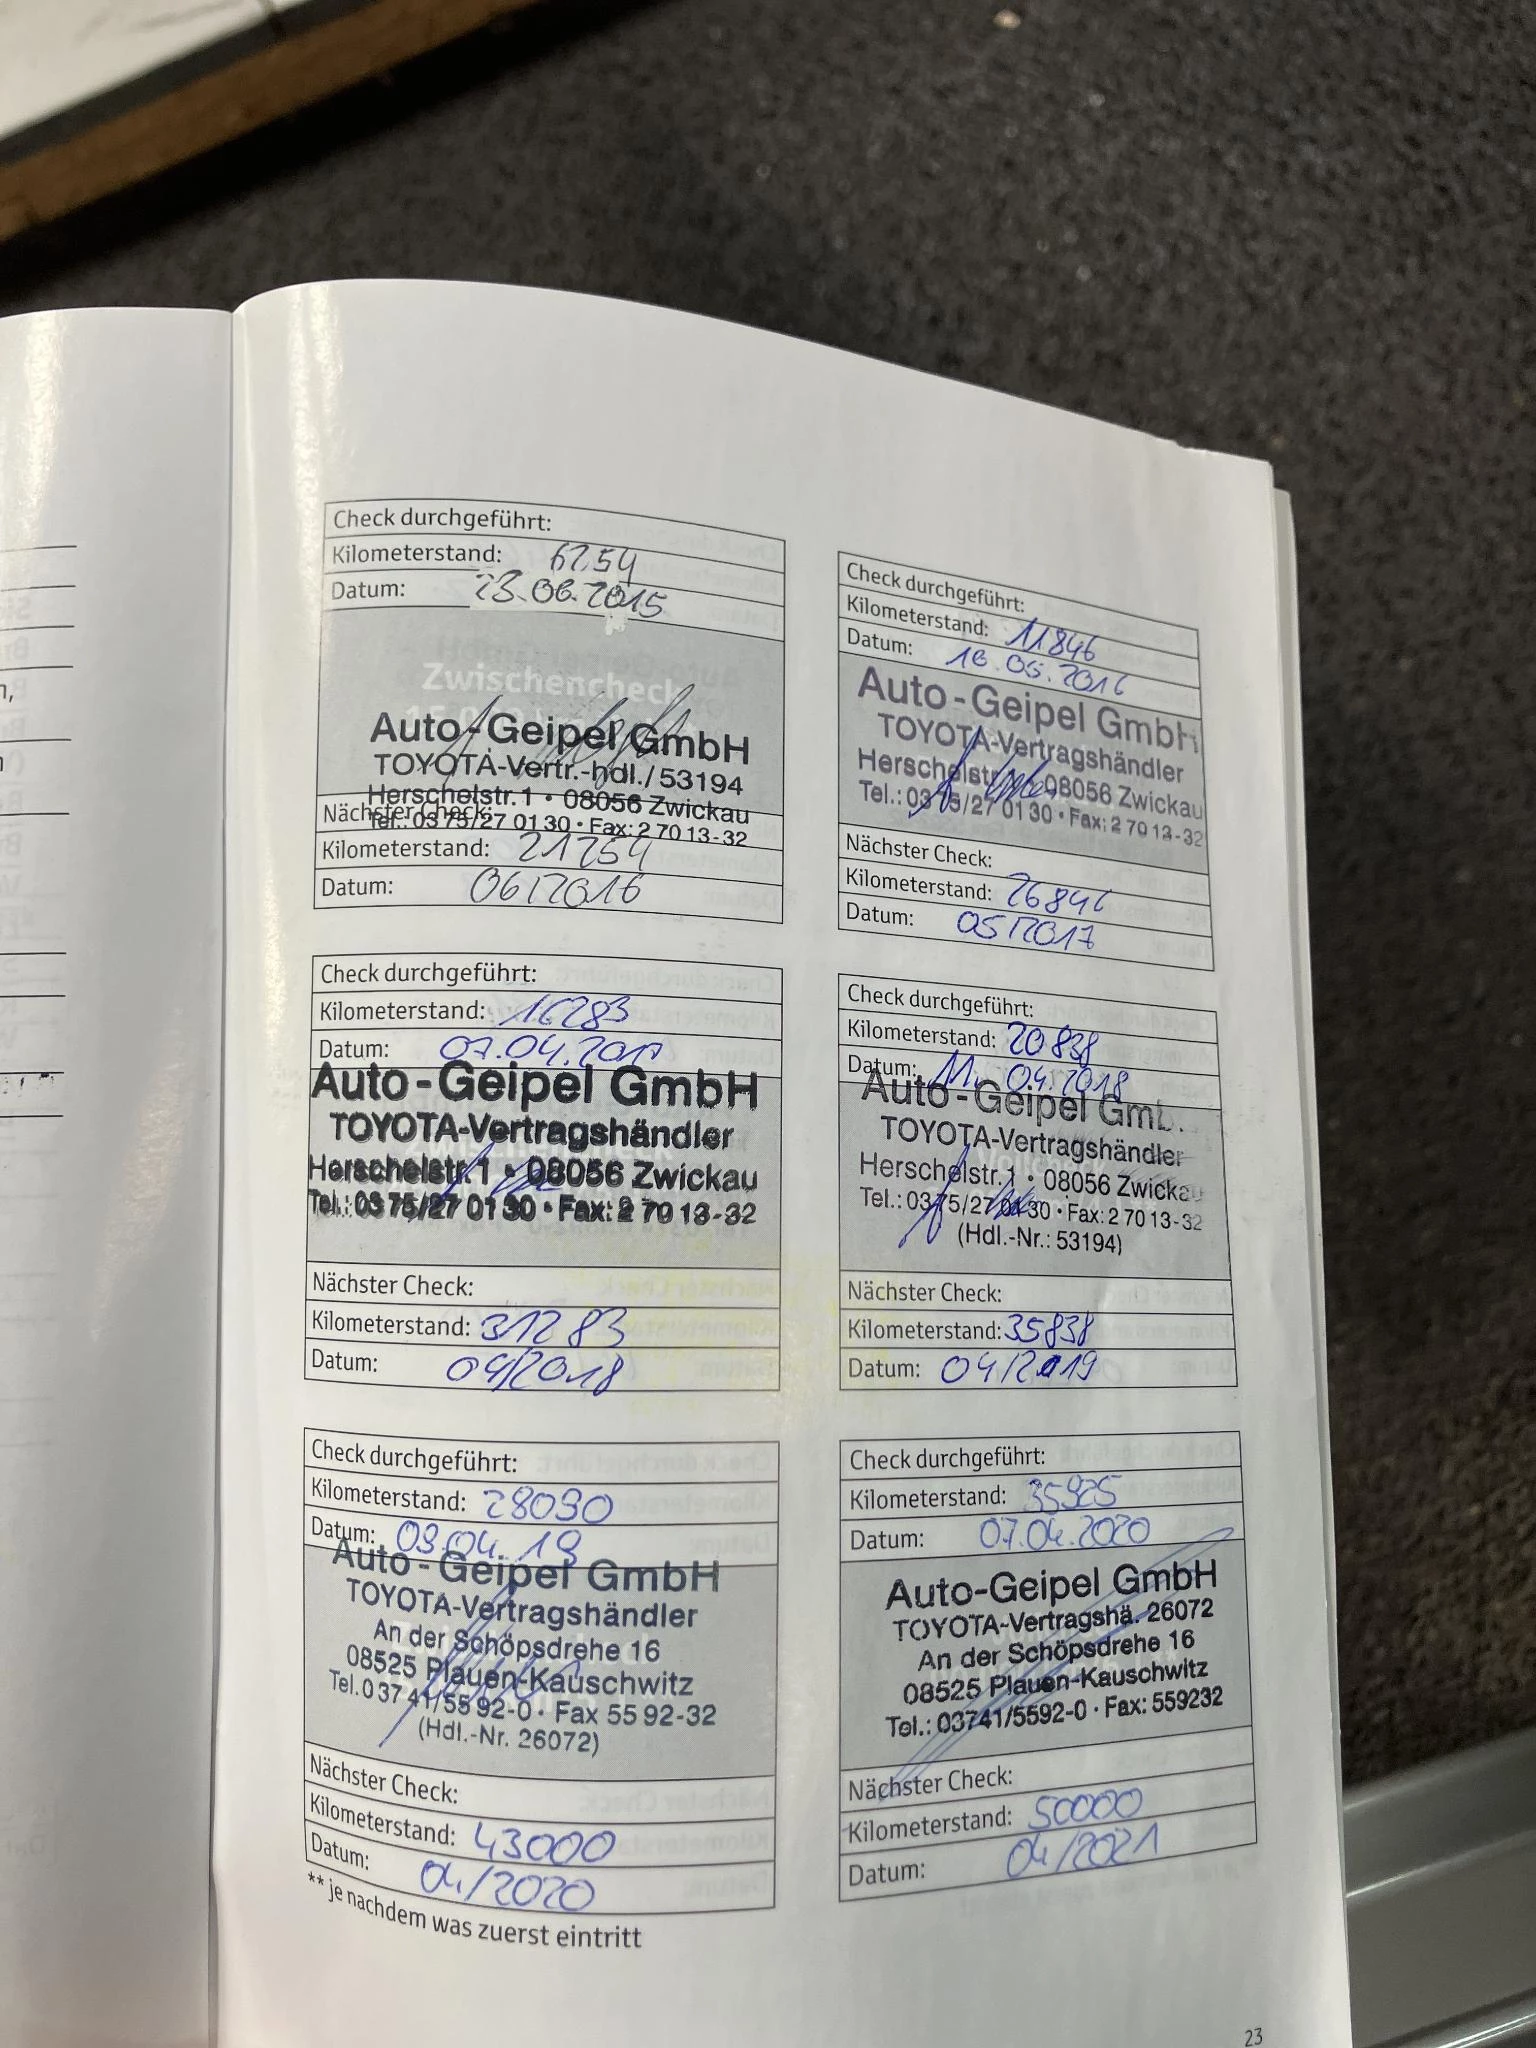 Check durchgeführt:
Kilometerstand: 6254
Datum: 23.06.2015
Zwischencheck
Auto-Geipel GmbH
TOYOTA-Vertr.-hdl./53194
Herschelstr.1 • 08056 Zwickau
Tel.: 03 75/27 01 30 • Fax: 2 70 13-32
Nächster Check:
Kilometerstand: 21254
Datum: 06/2016
Check durchgeführt:
Kilometerstand: 11846
Datum: 18.05.2016
Auto-Geipel GmbH
TOYOTA-Vertragshändler
Herschelstr.1 • 08056 Zwickau
Tel.: 03 75/27 01 30 • Fax: 2 70 13-32
Nächster Check:
Kilometerstand: 26846
Datum: 05/2017
Check durchgeführt:
Kilometerstand: 16283
Datum: 07.04.2017
Auto-Geipel GmbH
TOYOTA-Vertragshändler
Herschelstr.1 • 08056 Zwickau
Tel.: 03 75/27 01 30 • Fax: 2 70 13-32
Nächster Check:
Kilometerstand: 31283
Datum: 04/2018
Check durchgeführt:
Kilometerstand: 20838
Datum: 11.04.2018
Auto-Geipel Gmb
TOYOTA-Vertragshändler
Herschelstr.1 • 08056 Zwickau
Tel.: 03 75/27 01 30 • Fax: 2 70 13-32
(Hdl.-Nr.: 53194)
Nächster Check:
Kilometerstand: 35838
Datum: 04/2019
Check durchgeführt:
Kilometerstand: 28090
Datum: 09.04.19
Auto-Geipel GmbH
TOYOTA-Vertragshändler
An der Schöpsdrehe 16
08525 Plauen-Kauschwitz
Tel.0 37 41/55 92-0 · Fax 55 92-32
(Hdl.-Nr. 26072)
Nächster Check:
Kilometerstand: 43000
Datum: 04/2020
Check durchgeführt:
Kilometerstand: 35925
Datum: 07.04.2020
Auto-Geipel GmbH
TOYOTA-Vertragshä. 26072
An der Schöpsdrehe 16
08525 Plauen-Kauschwitz
Tel.: 03741/5592-0 · Fax: 559232
Nächster Check:
Kilometerstand: 50000
Datum: 04/2021
** je nachdem was zuerst eintritt
23